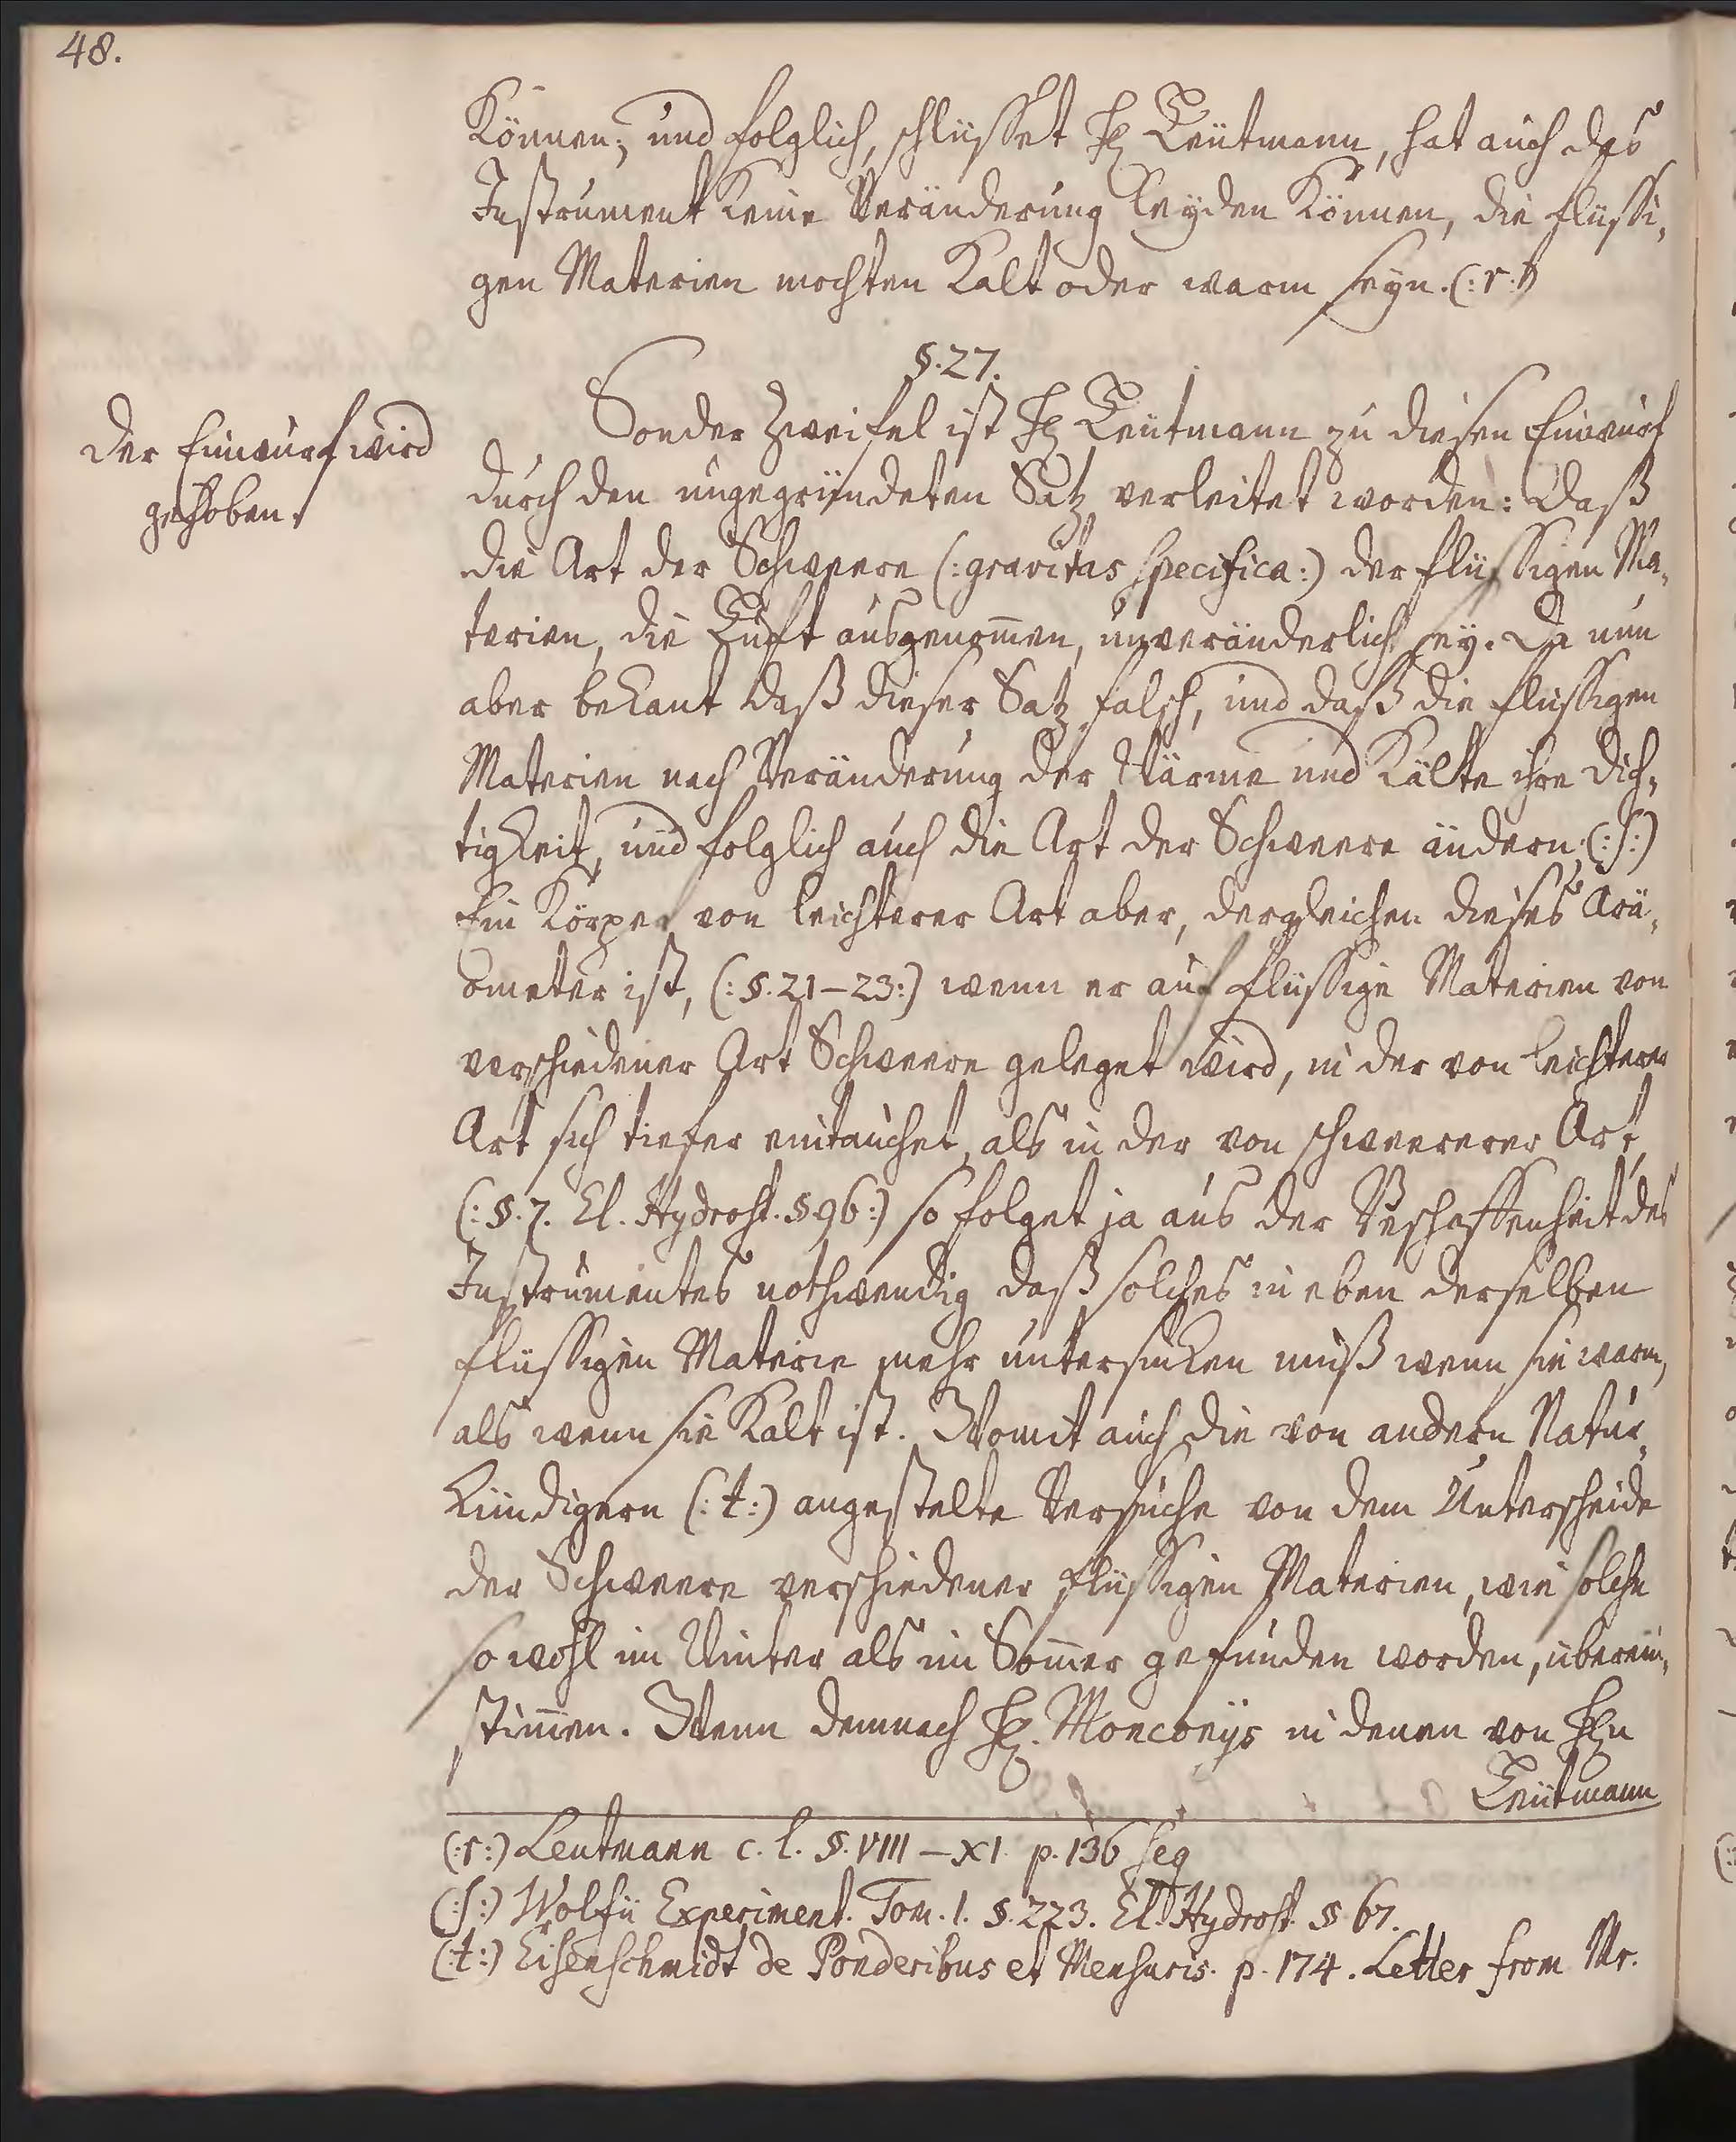 48.
Können; und folglich, schlüsset H. Leütmann, hat auch das
Instrument keine Veränderung leyden können, die flüssi,
gen Materien mochten kalt oder warm seyn. (:r:)
§. 27.
Der Einwurf wird
gehoben.
Sonder Zweifel ist H. Leütmann zu diesen Einwurf
durch den ungegründeten Satz verleitet worden: Daß
die Art der Schweere (:gravitas specifica:) der flüssigen Ma,
terien, die Luft ausgenom̄en, unveränderlich sey. Da nun
aber bekant daß dieser Satz falsch, und daß die flüssigen
Materien nach Veränderung der Wärme und Kälte ihre Dich,
tigkeit, und folglich auch die Art der Schweere ändern. (:s:)
Ein Körper von leichterer Art aber, dergleichen dieses Aräo,
ometer ist, (:§. 21–23:) wenn er auf flüssige Materien von
verschiedener Art Schweere geleget wird, in der von leichterer
Art sich tiefer eintauchet, als in der von schweererer Art,
(:§. 7. El. Hydrost. §. 96:) so folget ja aus der Beschaffenheit des
Instrumentes nothwendig daß solches in eben derselben
flüssigen Materie mehr untersincken muß wenn sie warm,
als wenn sie kalt ist. Womit auch die von andern Natur,
kündigern (:t:) angestelte Versuche von dem Unterscheide
der Schweere verschiedener flüssigen Materien, wie solche
so wohl im Winter als im Som̄er gefunden worden, überein,
stim̄en. Wenn demnach H. Monconys in denen von Hn
Leütmann
(:r:) Leutmann c. l. §. VIII – XI. p. 136 seq
(:s:) Wolfii Experiment. Tom. 1. §. 223. El. Hydrost. § 67.
(:t:) Eisenschmidt de Ponderibus et Mensuris. p. 174. Letter from Mr.